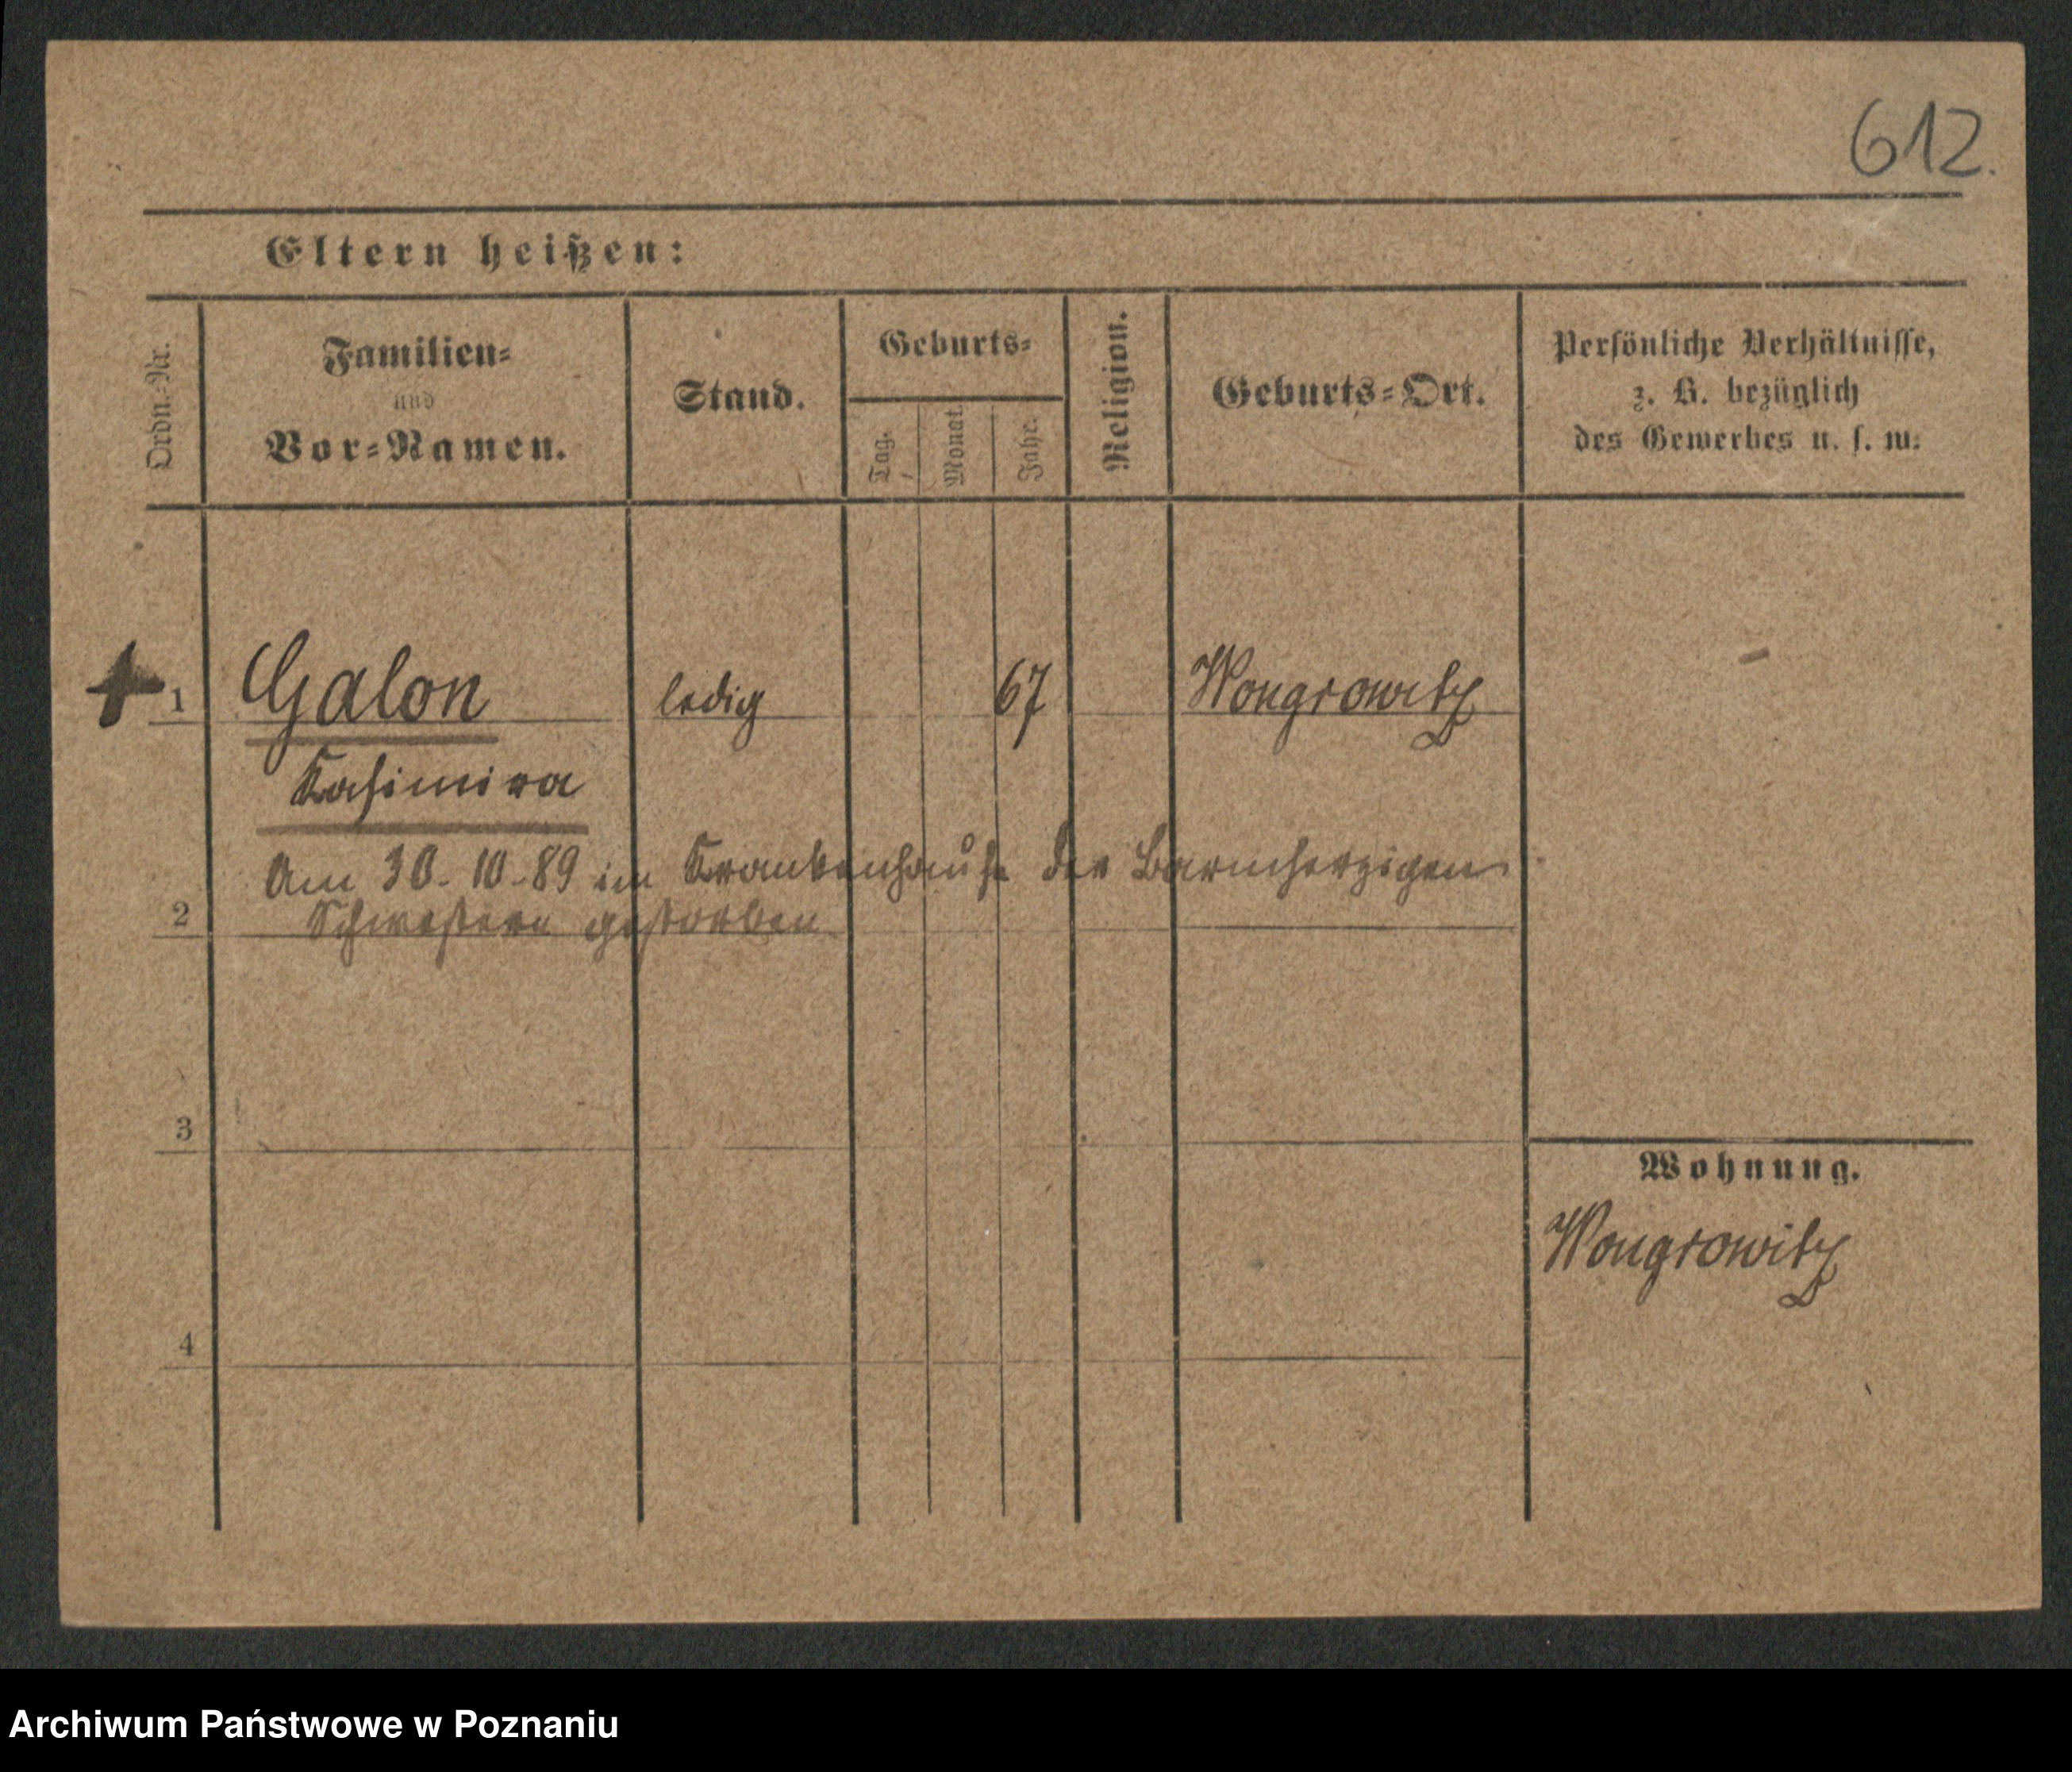 612.
Eltern heißen:
Ordn.-Nr.
Familien-
und
Vor-Namen.
Stand.
Geburts-
Tag.
Monat.
Jahr.
Religion.
Geburts-Ort.
Persönliche Verhältnisse,
z. B. bezüglich
des Gewerbes u. s. w.
1 Galon ledig 67 Wongrowitz
Kasimira
Am 30-10-89 im Krankenhause der Barmherzigen
2 Schwestern gestorben
3
Wohnung.
Wongrowitz
4
Archiwum Państwowe w Poznaniu